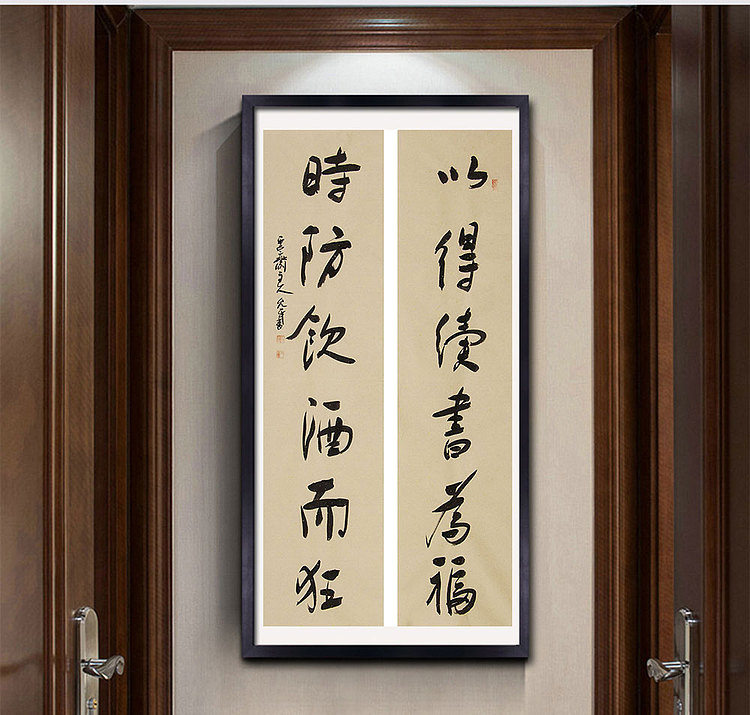 以得續書為福
時防飲酒而狂